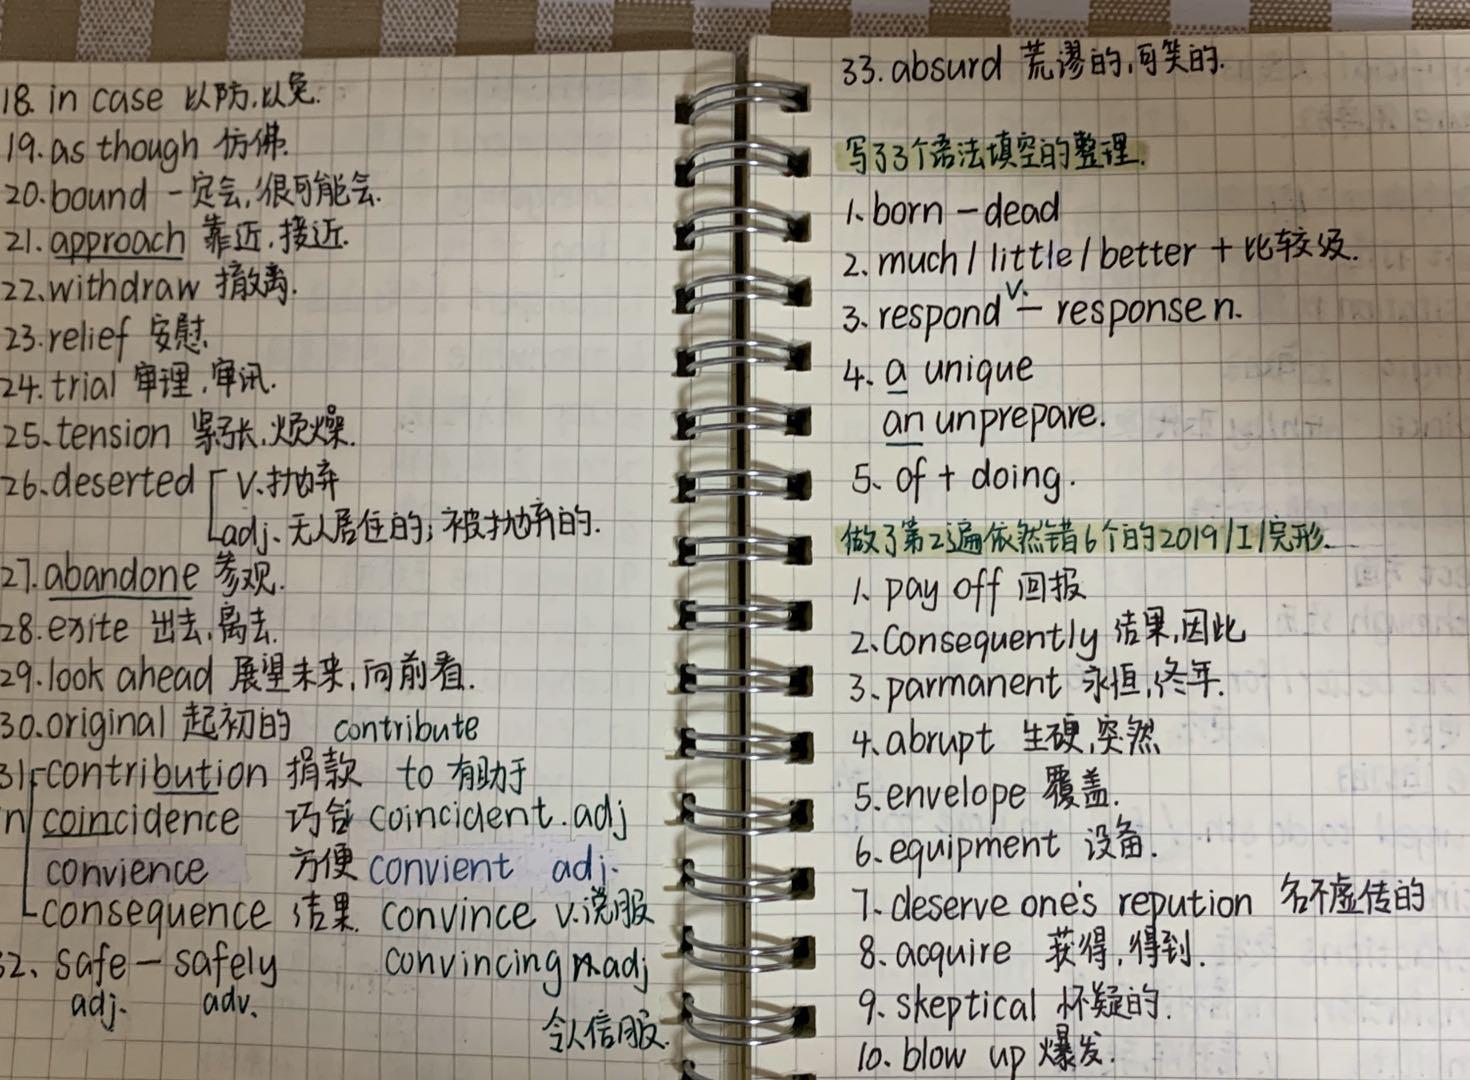 18. in case 以防,以免.
19. as though 仿佛.
20. bound 一定会,很可能会.
21. approach 靠近,接近.
22. withdraw 撤离.
23. relief 安慰.
24. trial 审理,审讯.
25. tension 紧张,烦燥.
26. deserted v.抛弃
adj. 无人居住的;被抛弃的.
27. abandone 参观.
28. exite 出去,离去.
29. look ahead 展望未来,向前看.
30. original 起初的 contribute
31 contribution 捐款 to 有助于
n coincidence 巧合 coincident. adj
convience 方便 convient adj.
consequence 结果. convince v.说服
32. safe — safely convincing adj
adj. adv.
令人信服.
33. absurd 荒谬的,可笑的.
写了3个语法填空的整理.
1. born — dead
2. much / little / better + 比较级.
3. respond v. — response n.
4. a unique
an unprepare.
5. of + doing.
做了第2遍依然错6个的2019/I/完形.
1. pay off 回报
2. Consequently 结果,因此
3. parmanent 永恒,终年.
4. abrupt 生硬,突然
5. envelope 覆盖.
6. equipment 设备.
7. deserve one's repution 名不虚传的
8. acquire 获得,得到.
9. skeptical 怀疑的.
10. blow up 爆发.